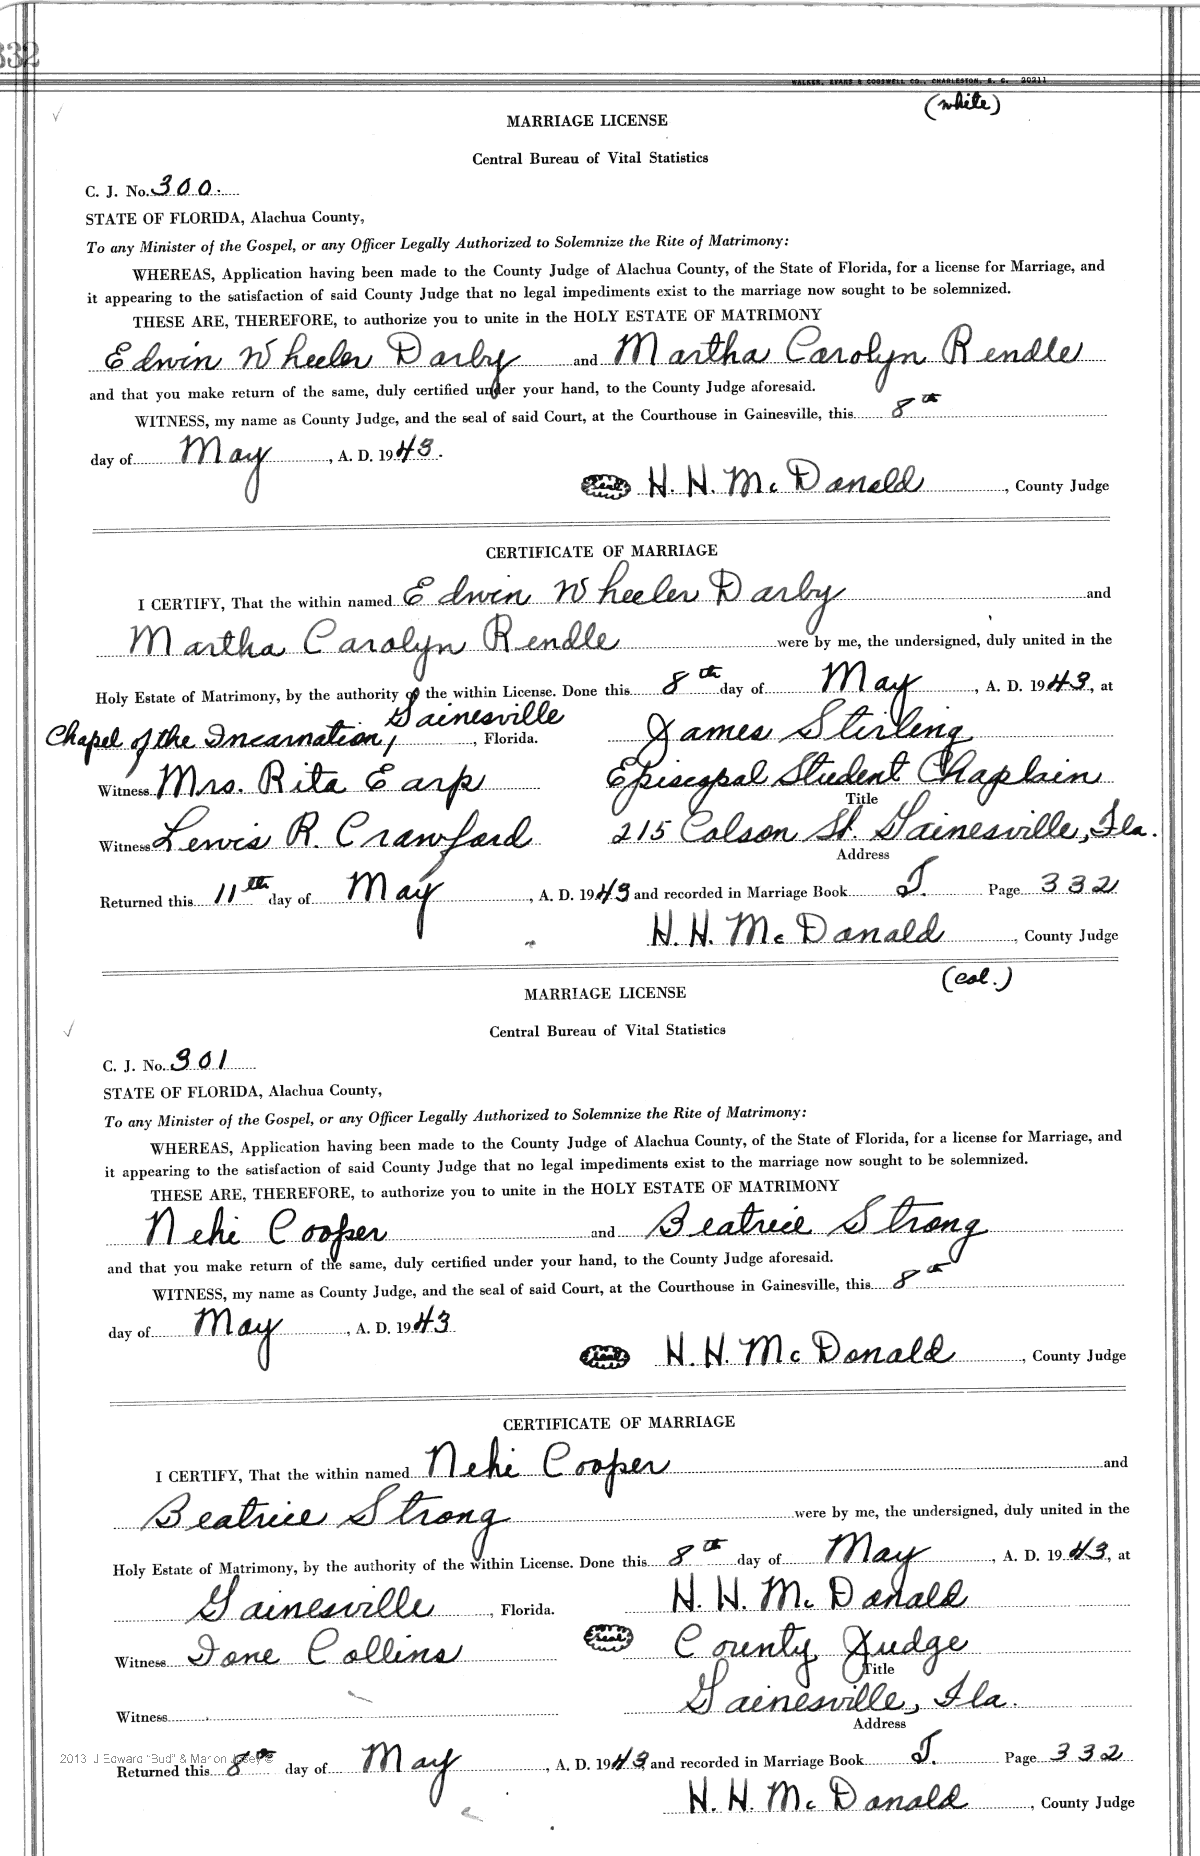 332
WALKER, EVANS & COGSWELL CO., CHARLESTON, S. C. 30211
(white)
MARRIAGE LICENSE
Central Bureau of Vital Statistics
C. J. No. 300.
STATE OF FLORIDA, Alachua County,
To any Minister of the Gospel, or any Officer Legally Authorized to Solemnize the Rite of Matrimony:
WHEREAS, Application having been made to the County Judge of Alachua County, of the State of Florida, for a license for Marriage, and
it appearing to the satisfaction of said County Judge that no legal impediments exist to the marriage now sought to be solemnized.
THESE ARE, THEREFORE, to authorize you to unite in the HOLY ESTATE OF MATRIMONY
Edwin Wheeler Darby and Martha Carolyn Rendle
and that you make return of the same, duly certified under your hand, to the County Judge aforesaid.
WITNESS, my name as County Judge, and the seal of said Court, at the Courthouse in Gainesville, this 8th
day of May, A. D. 1943.
Seal H. H. McDonald, County Judge
CERTIFICATE OF MARRIAGE
I CERTIFY, That the within named Edwin Wheeler Darby and
Martha Carolyn Rendle were by me, the undersigned, duly united in the
Holy Estate of Matrimony, by the authority of the within License. Done this 8th day of May, A. D. 1943, at
Chapel of the Incarnation, Gainesville, Florida. James Stirling
Witness Mrs. Rita Earp Episcopal Student Chaplain
Title
Witness Lewis R. Crawford 215 Colson St. Gainesville, Fla.
Address
Returned this 11th day of May, A. D. 1943 and recorded in Marriage Book J. Page 332
H. H. McDonald, County Judge
(col.)
MARRIAGE LICENSE
Central Bureau of Vital Statistics
C. J. No. 301
STATE OF FLORIDA, Alachua County,
To any Minister of the Gospel, or any Officer Legally Authorized to Solemnize the Rite of Matrimony:
WHEREAS, Application having been made to the County Judge of Alachua County, of the State of Florida, for a license for Marriage, and
it appearing to the satisfaction of said County Judge that no legal impediments exist to the marriage now sought to be solemnized.
THESE ARE, THEREFORE, to authorize you to unite in the HOLY ESTATE OF MATRIMONY
Nehi Cooper and Beatrice Strong
and that you make return of the same, duly certified under your hand, to the County Judge aforesaid.
WITNESS, my name as County Judge, and the seal of said Court, at the Courthouse in Gainesville, this 8th
day of May, A. D. 1943
Seal H. H. McDonald, County Judge
CERTIFICATE OF MARRIAGE
I CERTIFY, That the within named Nehi Cooper and
Beatrice Strong were by me, the undersigned, duly united in the
Holy Estate of Matrimony, by the authority of the within License. Done this 8th day of May, A. D. 1943, at
Gainesville, Florida. H. H. McDonald
Witness Ione Collins Seal County Judge
Title
Witness Gainesville, Fla.
Address
2013 J Edward "Bud" & Marion Josey ©
Returned this 8th day of May, A. D. 1943 and recorded in Marriage Book J. Page 332
H. H. McDonald, County Judge